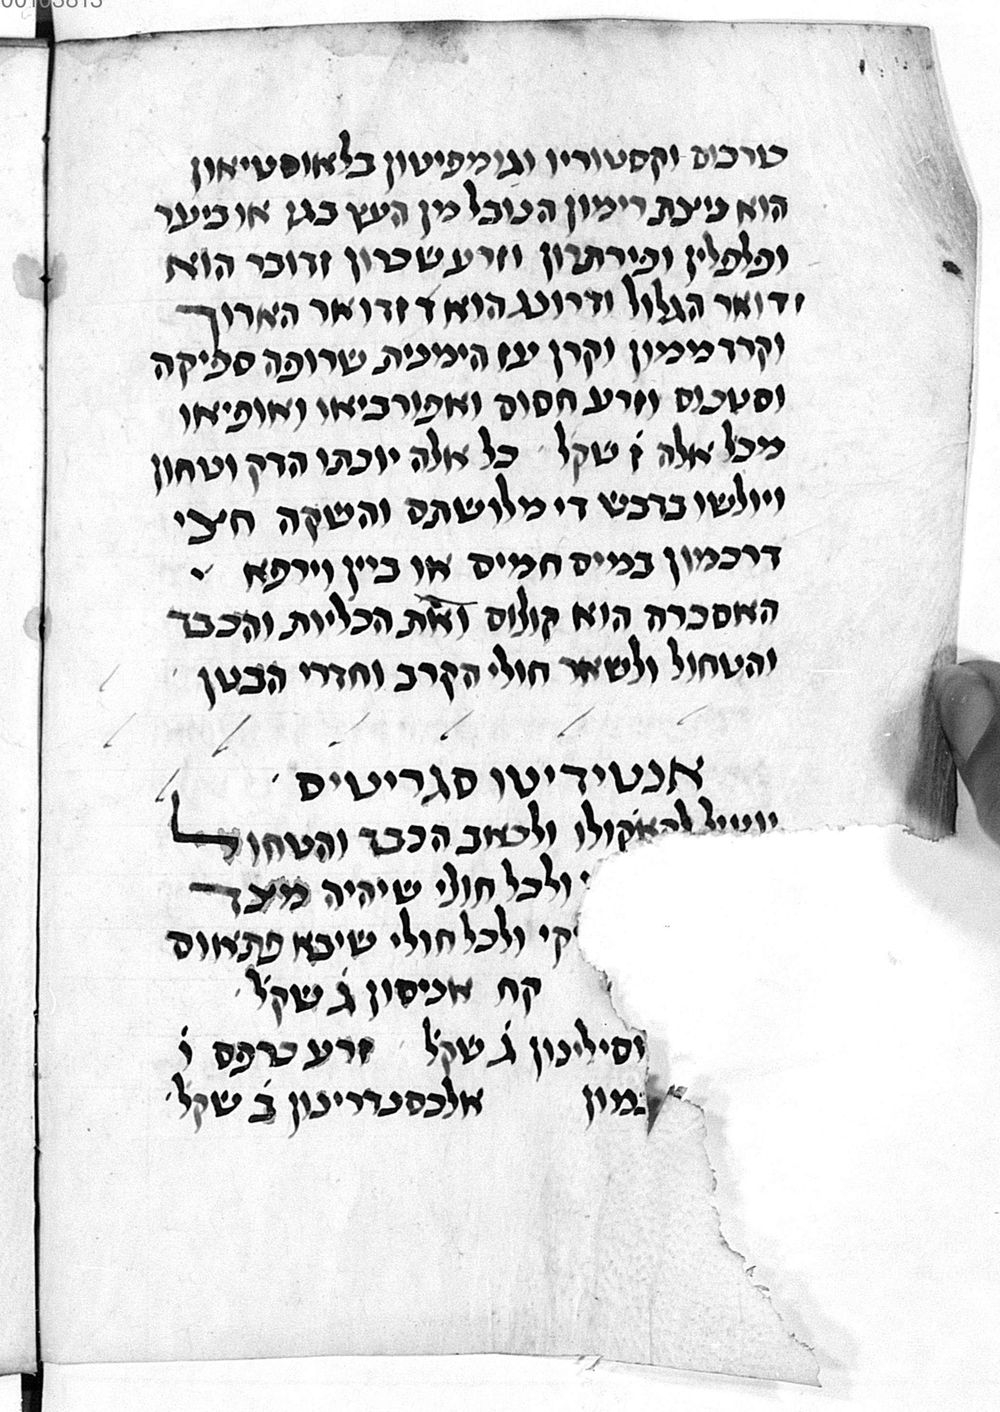 00103813
טרכוס וקסטוריו וגומפיטון בלאוסטיאון
הוא ניצת רימון הנובל מן העץ בגן או ביער
ופלפלין ופירתרון וזרע שטרון זדובר הוא
זדואר הגלול ודרונג הוא ד זדואר הארוך
וקרדממון וקרן עז הימנית שרופה ספיקה
וסטכוס וזרע חסוס ואפורביאו ואופיאו
מכל אלה ז שקל כל אלה יוכתו הדק וטחון
ויולשו בדבש די מלושתם והשקה חצי
דרכמון במים חמים או ביין וירפא
האסכרה הוא קולוס ואת הכליות והכבד
והטחול ולשאר חולי הקרב וחדרי הבטן
אנטידיטו סגריטיס
יועיל ולכאב הכבד והטחול
ולכל חולי שיהיה מצד
קי ולכל חולי שיבא פתאום
קח אניסון ג שקל
וסילינון ג שקל זרע כרפס ו
מון אלכסנדרינון ב שקל